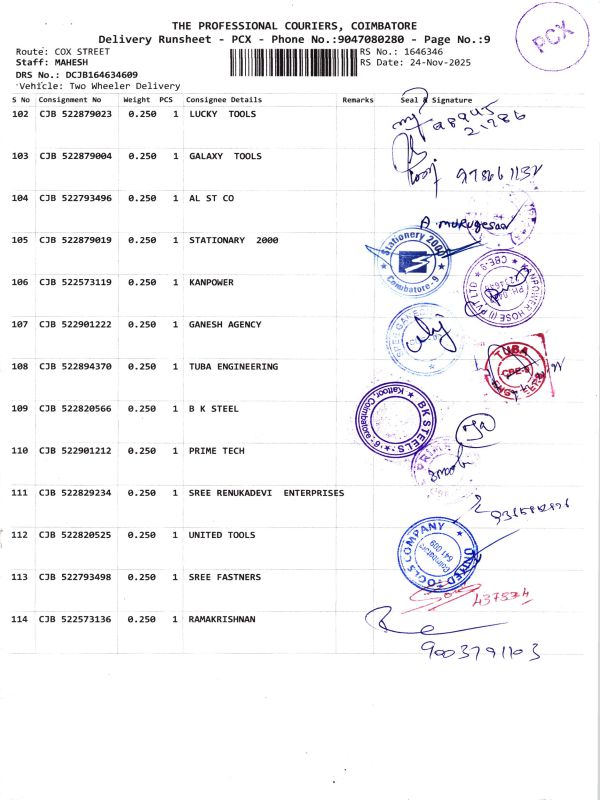 THE PROFESSIONAL COURIERS, COIMBATORE
Delivery Runsheet - PCX - Phone No.:9047080280 - Page No.:9
PCX
Route: COX STREET
RS No.: 1646346
Staff: MAHESH
RS Date: 24-Nov-2025
DRS No.: DCJB164634609
Vehicle: Two Wheeler Delivery
S No Consignment No Weight PCS Consignee Details Remarks Seal & Signature
102 CJB 522879023 0.250 1 LUCKY TOOLS
103 CJB 522879004 0.250 1 GALAXY TOOLS
104 CJB 522793496 0.250 1 AL ST CO
A. murugesan
105 CJB 522879019 0.250 1 STATIONARY 2000
Stationery 2000
Coimbatore-9
106 CJB 522573119 0.250 1 KANPOWER
107 CJB 522901222 0.250 1 GANESH AGENCY
108 CJB 522894370 0.250 1 TUBA ENGINEERING
TUBA
109 CJB 522820566 0.250 1 B K STEEL
BK STEELS
Kattoor, Coimbatore-9
110 CJB 522901212 0.250 1 PRIME TECH
111 CJB 522829234 0.250 1 SREE RENUKADEVI ENTERPRISES
112 CJB 522820525 0.250 1 UNITED TOOLS
UNITED TOOLS COMPANY
Coimbatore
641 009
113 CJB 522793498 0.250 1 SREE FASTNERS
114 CJB 522573136 0.250 1 RAMAKRISHNAN
9003791103